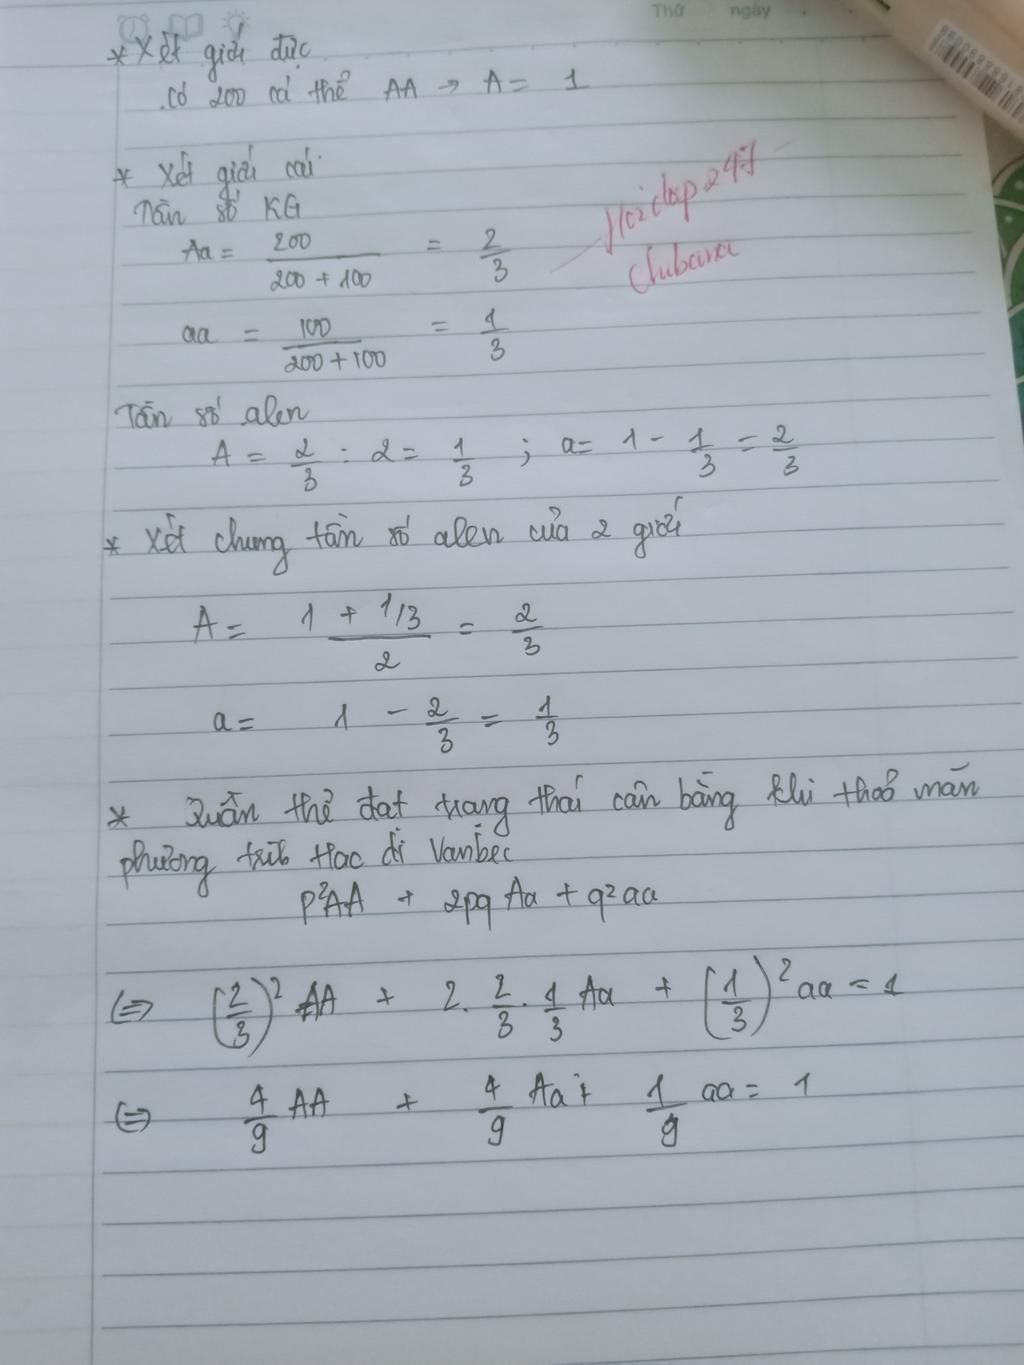 Thứ ngày
* Xét giới đực
.Có 200 cá thể AA → A = 1
* Xét giới cái
Tần số KG
Aa = 200 / 200 + 100 = 2/3
Hoidap247
Chubana
aa = 100 / 200 + 100 = 1/3
Tần số alen
A = 2/3 : 2 = 1/3 ; a = 1 - 1/3 = 2/3
* Xét chung tần số alen của 2 giới
A = 1 + 1/3 / 2 = 2/3
a = 1 - 2/3 = 1/3
* Quần thể đạt trạng thái cân bằng khi thoả mãn
phương trìh Hac đi Vanbec
p²AA + 2pq Aa + q² aa
(=) (2/3)² AA + 2. 2/3 . 1/3 Aa + (1/3)² aa = 1
(=) 4/9 AA + 4/9 Aa + 1/9 aa = 1